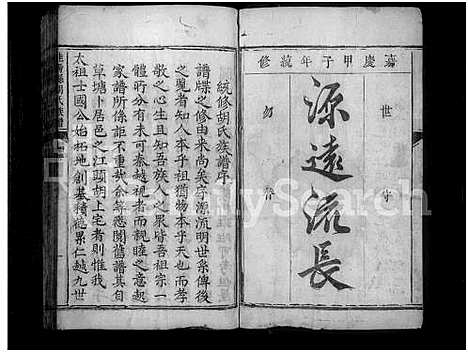 嘉慶甲子年統修
世守
源遠流長
勿替
統修胡氏族譜序
譜牒之修由来尚矣序源流明世系俾後
之覽者知人本乎祖猶物本乎天也而孝
敬之心生且知吾族人之果皆吾祖宗一
體罔有或秦越視者而親睦之意起
家譜所係詎不重哉余等慈閱舊譜其自
草塘卜居邑之江頭胡上宅者則惟我
太祖士國公始拓地創基積累仁越九世
胡氏族譜
FamilySearch